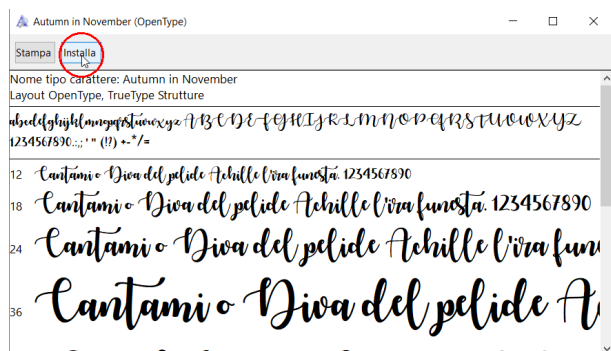 Autumn in November (OpenType)
Stampa Installa
Nome tipo carattere: Autumn in November
Layout OpenType, TrueType Strutture
abcdefghijklmnopqrstuvwxyz ABCDEFGHIJKLMNOPQRSTUVWXYZ
1234567890.:,; ' " (!?) +-*/=
12 Cantami o Diva del pelide Achille l'ira funesta. 1234567890
18 Cantami o Diva del pelide Achille l'ira funesta. 1234567890
24 Cantami o Diva del pelide Achille l'ira fun
36 Cantami o Diva del pelide A